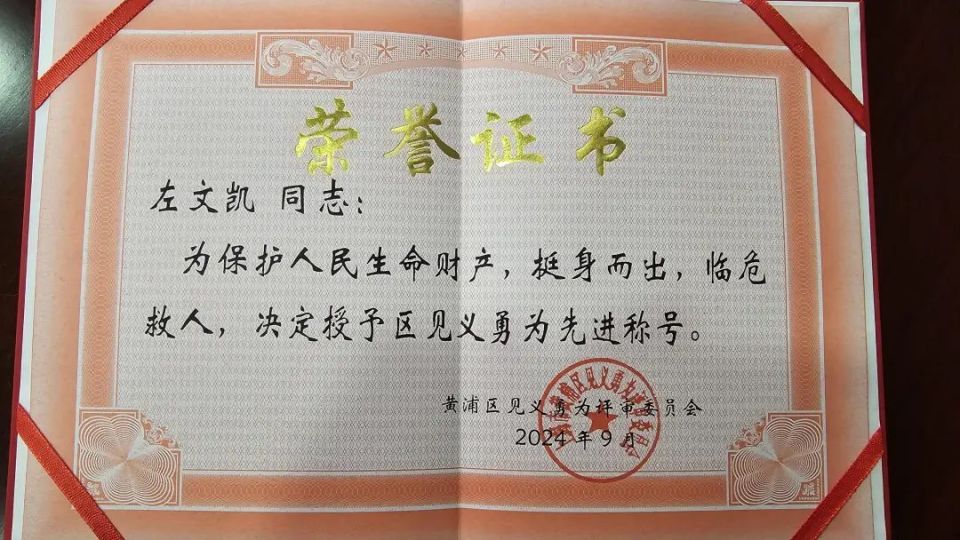 荣誉证书
左文凯 同志：
为保护人民生命财产，挺身而出，临危
救人，决定授予区见义勇为先进称号。
黄浦区见义勇为评审委员会
2024年9月